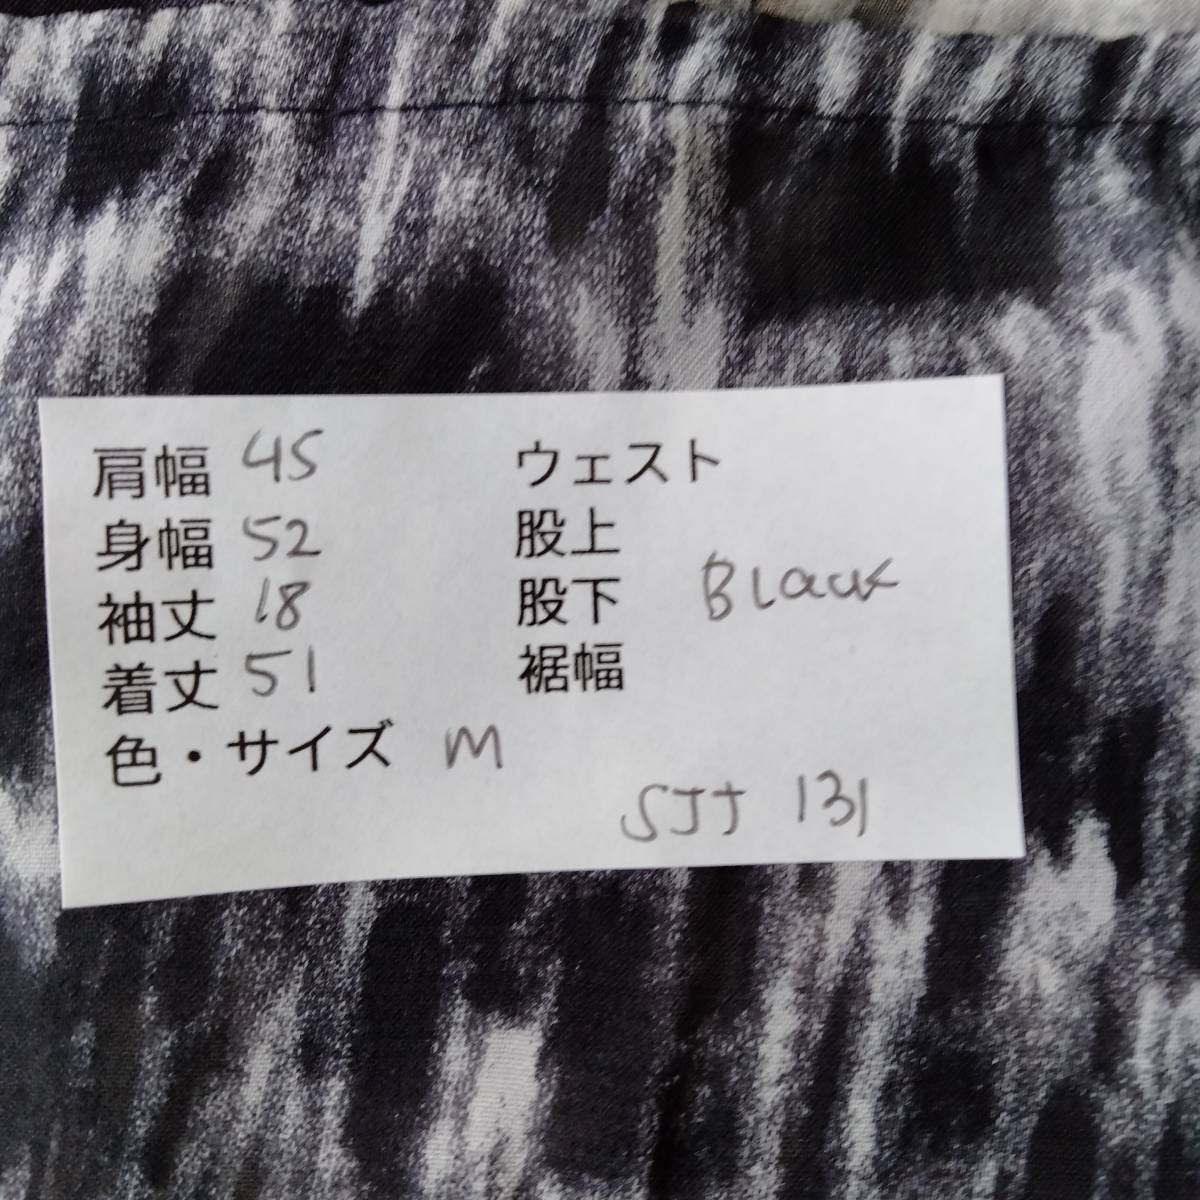 肩幅 45
身幅 52
袖丈 18
着丈 51
色・サイズ M
ウェスト
股上
股下
裾幅
Black
SJJ 131